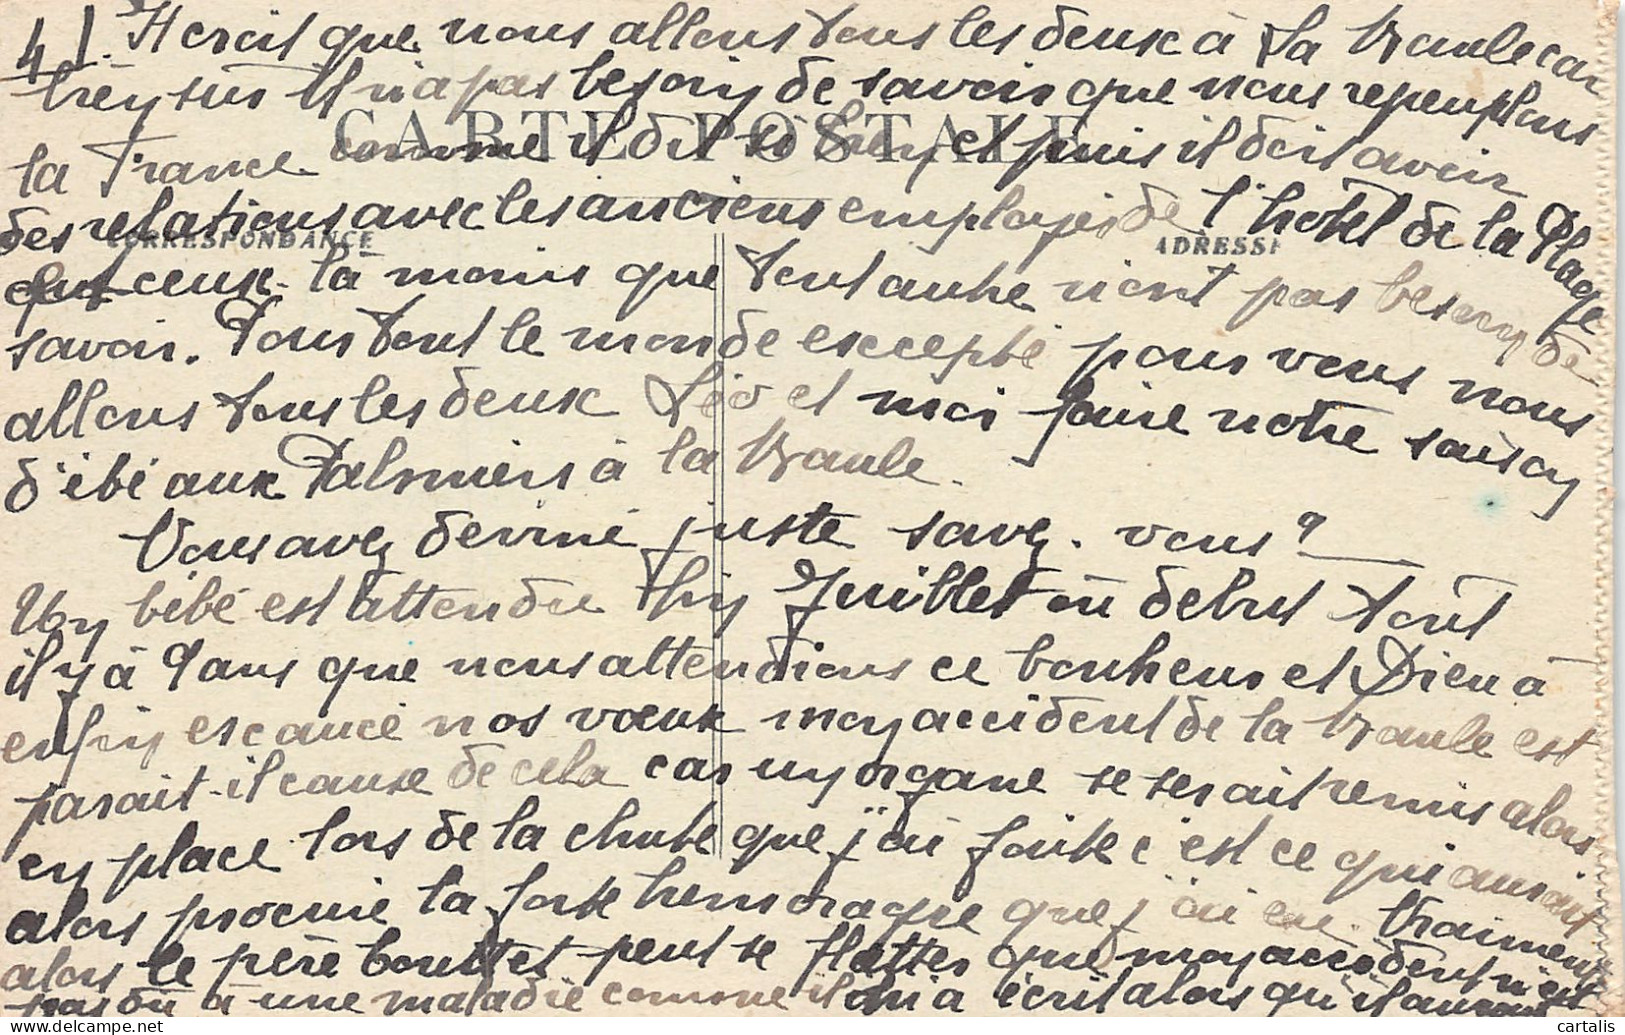 4). Il croit que nous allons tous les deux à La Baule car
bien sur Il n'a pas besoin de savoir que nous repeuplons
CARTE POSTALE
la France comme il dit si bien, et puis il doit avoir
des relations avec les anciens employés de l'hotel de la Plage
CORRESPONDANCE
ADRESSE
ceux-là moins que tout autre n'ont pas besoin de
savoir. Pour tout le monde excepté pour vous nous
allons tous les deux Léo et moi faire notre saison
d'été aux Palmiers à la Baule.
Vous avez deviné juste savez-vous?
Un bébé est attendu fin Juillet ou début Août
il y à 9 ans que nous attendions ce bonheur et Dieu à
enfin exaucé nos vœux mon accident de la Baule est
parait-il cause de cela car un organe se serait remis alors
en place lors de la chute que j'ai faite c'est ce qui aurait
alors procuré la forte hemoragie que j'ai eue. Vraiment
alors le père Bouttet peut se flatter que mon accident n'est
pas dû à une maladie comme il m'a écrit alors qu'il aurait
cartalis
www.delcampe.net